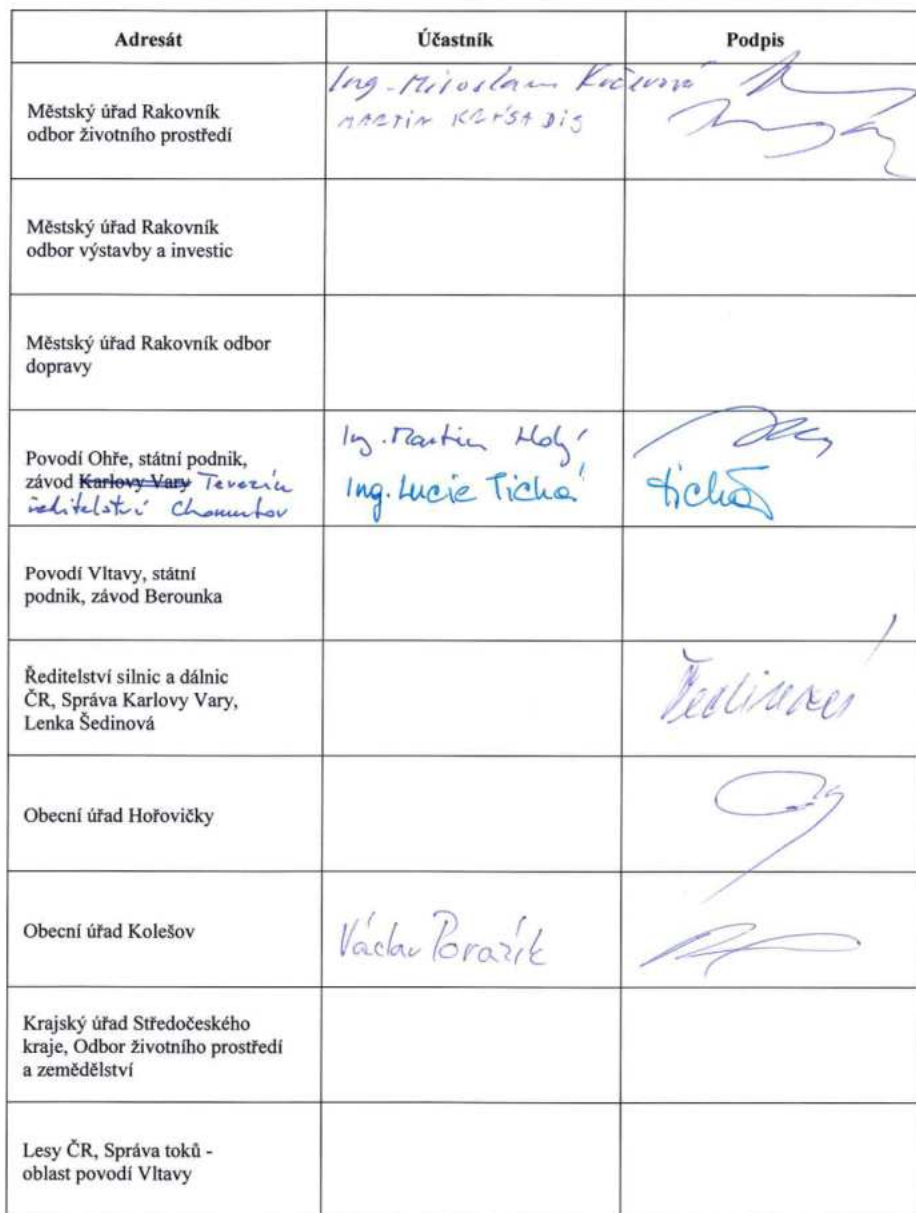 Adresát Účastník Podpis
Městský úřad Rakovník
odbor životního prostředí
Ing. Miroslava
MARTIN DiS
Městský úřad Rakovník
odbor výstavby a investic
Městský úřad Rakovník odbor
dopravy
Povodí Ohře, státní podnik,
závod Karlovy Vary Terezín
ředitelství Chomutov
Ing. Martin Holý
Ing. Lucie Tichá
Tichá
Povodí Vltavy, státní
podnik, závod Berounka
Ředitelství silnic a dálnic
ČR, Správa Karlovy Vary,
Lenka Šedinová
Šedinová
Obecní úřad Hořovičky
Obecní úřad Kolešov
Václav Povazík
Krajský úřad Středočeského
kraje, Odbor životního prostředí
a zemědělství
Lesy ČR, Správa toků -
oblast povodí Vltavy